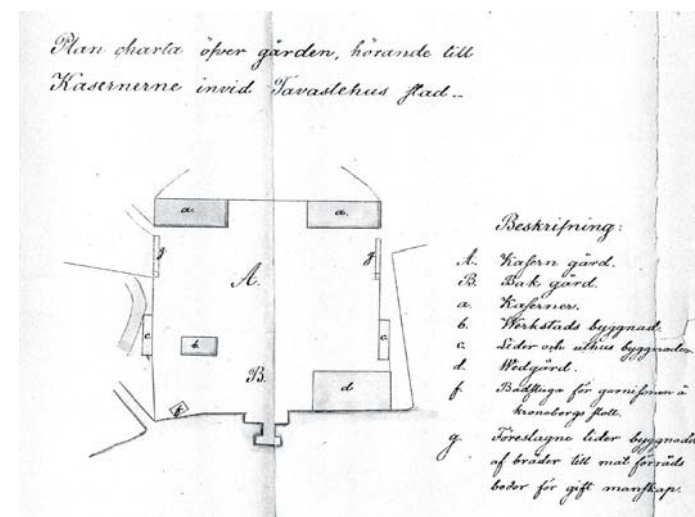 Plan charta öfver gården, hörande till
Kasernerne invid Tavastehus stad.
a.
a.
g
g
A.
c
c.
b
B.
d
f
Beskrifning:
A. Kasern gård.
B. Bak gård.
a. Kaserner.
b. Werkstads byggnad.
c. Lider och uthus byggnader.
d. Wedgård.
f. Badstuga för garnisonen å
kronoborgs slott.
g Föreslagne lider byggnader
af bräder till mat förråds
bodor för gift manskap.